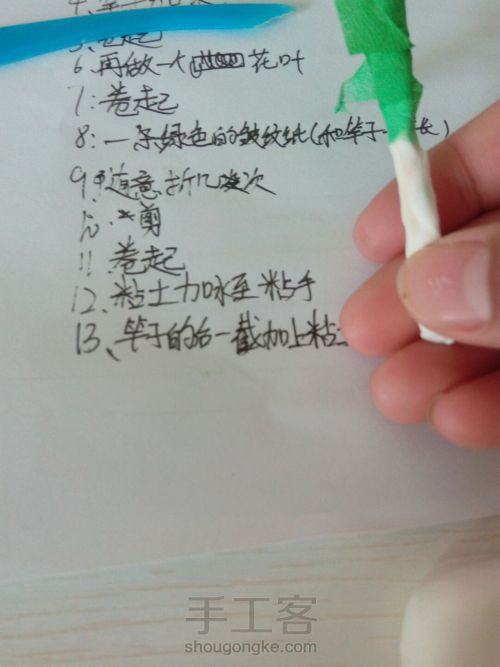 5、卷起
6、再做一个花叶
7:卷起
8:一条绿色的皱纹纸(和竿子一长)
9、随意折几次
10、剪
11、卷起
12、粘土加水至粘手
13、竿子的后一截加上粘土
手工客
shougongke.com